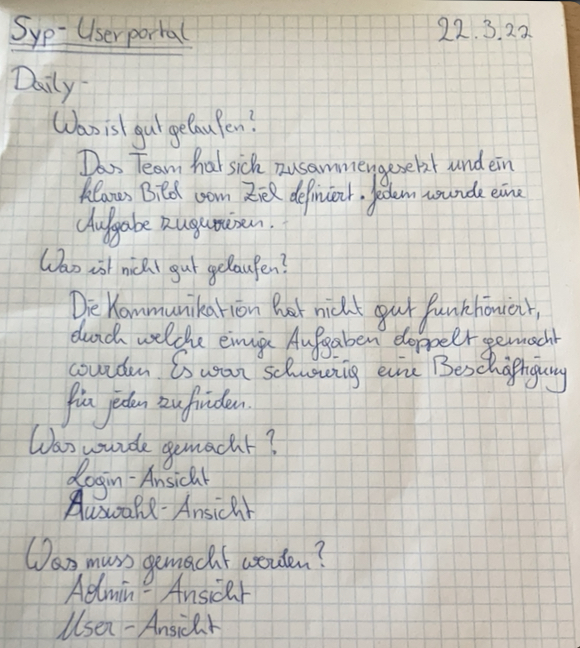 Syp-Userportal 22.3.22
Daily-
Was ist gut gelaufen?
Das Team hat sich zusammengesetzt und ein
klares Bild vom Ziel definiert. Jedem wurde eine
Aufgabe zugewiesen.
Was ist nicht gut gelaufen?
Die Kommunikation hat nicht gut funktioniert,
durch welche einige Aufgaben doppelt gemacht
wurden. Es war schwierig eine Beschäftigung
für jeden zufinden.
Was wurde gemacht?
Login-Ansicht
Auswahl-Ansicht
Was muss gemacht werden?
Admin-Ansicht
User-Ansicht